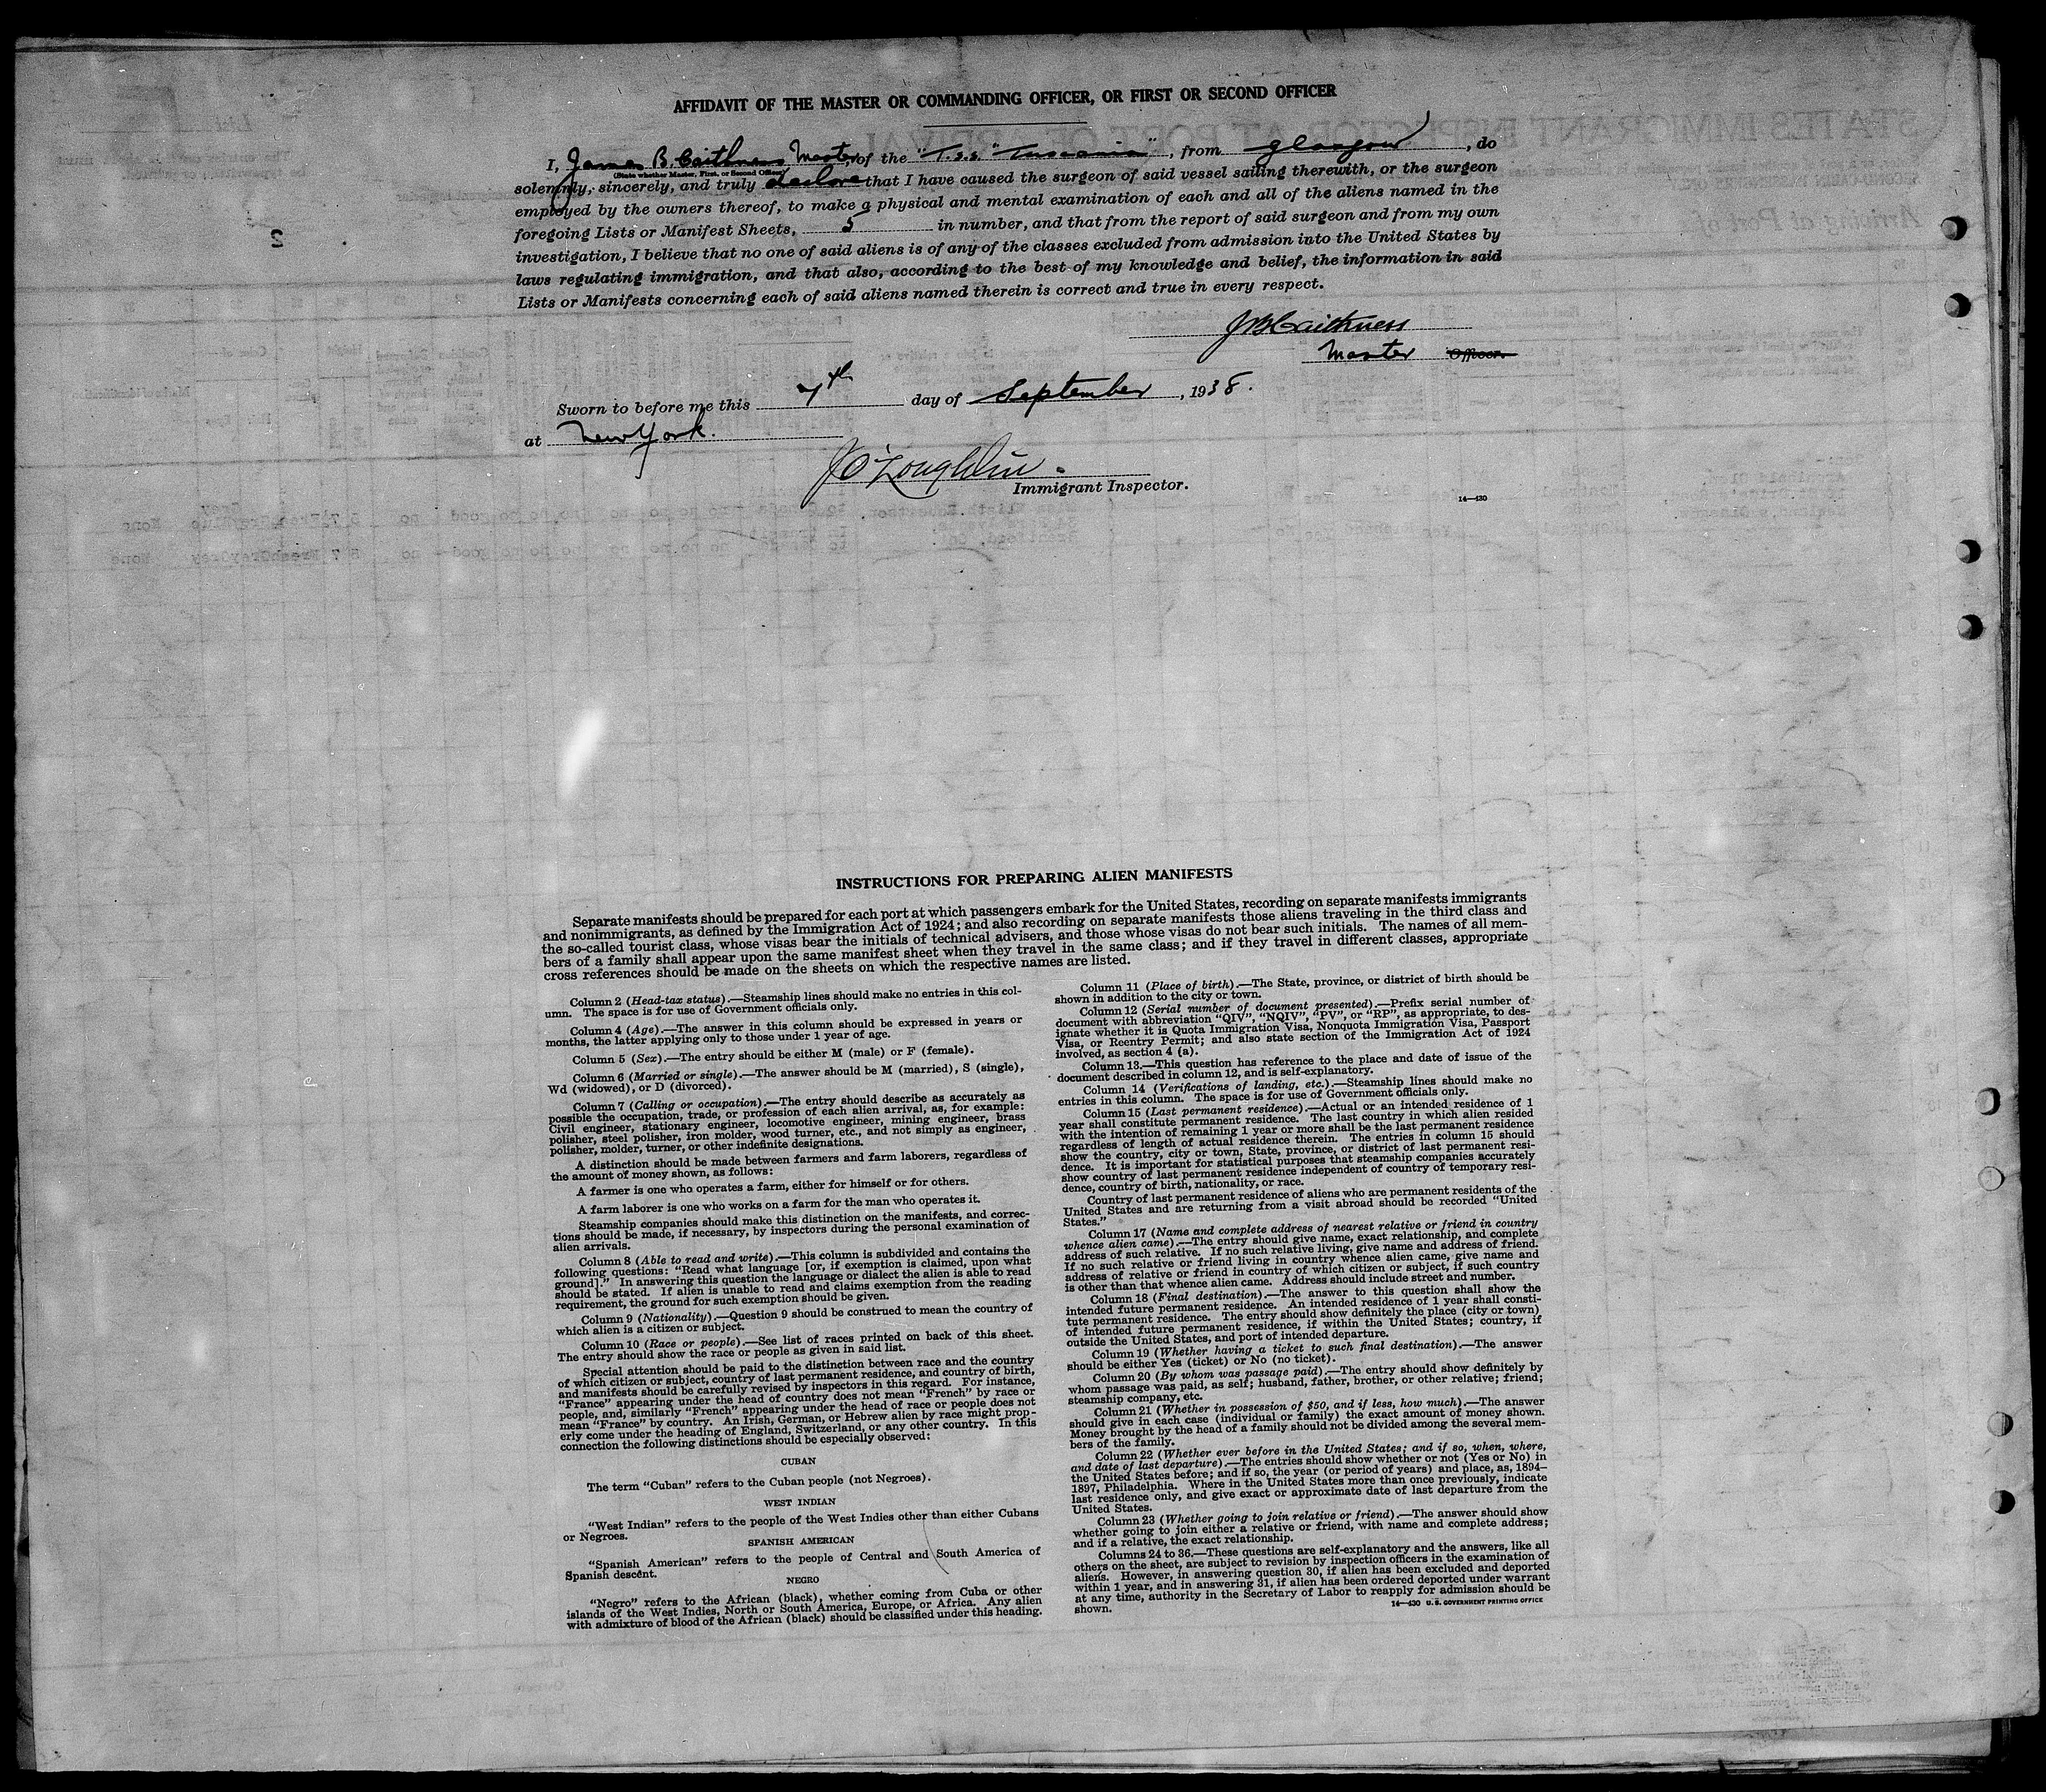 AFFIDAVIT OF THE MASTER OR COMMANDING OFFICER, OR FIRST OR SECOND OFFICER
I, James B. Caithness Master, of the "T.s.s. "Tuscania", from Glasgow, do
(State whether Master, First, or Second Officer)
solemnly, sincerely, and truly declare that I have caused the surgeon of said vessel sailing therewith, or the surgeon
employed by the owners thereof, to make a physical and mental examination of each and all of the aliens named in the
foregoing Lists or Manifest Sheets, 5 in number, and that from the report of said surgeon and from my own
investigation, I believe that no one of said aliens is of any of the classes excluded from admission into the United States by
laws regulating immigration, and that also, according to the best of my knowledge and belief, the information in said
Lists or Manifests concerning each of said aliens named therein is correct and true in every respect.
JBCaithness
Master Officer.
Sworn to before me this 7th day of September, 1938.
at New York.
J O'Loughlin.
Immigrant Inspector.
14—430
INSTRUCTIONS FOR PREPARING ALIEN MANIFESTS
Separate manifests should be prepared for each port at which passengers embark for the United States, recording on separate manifests immigrants
and nonimmigrants, as defined by the Immigration Act of 1924; and also recording on separate manifests those aliens traveling in the third class and
the so-called tourist class, whose visas bear the initials of technical advisers, and those whose visas do not bear such initials. The names of all mem-
bers of a family shall appear upon the same manifest sheet when they travel in the same class; and if they travel in different classes, appropriate
cross references should be made on the sheets on which the respective names are listed.
Column 2 (Head-tax status).—Steamship lines should make no entries in this col-
umn. The space is for use of Government officials only.
Column 4 (Age).—The answer in this column should be expressed in years or
months, the latter applying only to those under 1 year of age.
Column 5 (Sex).—The entry should be either M (male) or F (female).
Column 6 (Married or single).—The answer should be M (married), S (single),
Wd (widowed), or D (divorced).
Column 7 (Calling or occupation).—The entry should describe as accurately as
possible the occupation, trade, or profession of each alien arrival, as, for example:
Civil engineer, stationary engineer, locomotive engineer, mining engineer, brass
polisher, steel polisher, iron molder, wood turner, etc., and not simply as engineer,
polisher, molder, turner, or other indefinite designations.
A distinction should be made between farmers and farm laborers, regardless of
the amount of money shown, as follows:
A farmer is one who operates a farm, either for himself or for others.
A farm laborer is one who works on a farm for the man who operates it.
Steamship companies should make this distinction on the manifests, and correc-
tions should be made, if necessary, by inspectors during the personal examination of
alien arrivals.
Column 8 (Able to read and write).—This column is subdivided and contains the
following questions: "Read what language [or, if exemption is claimed, upon what
ground]." In answering this question the language or dialect the alien is able to read
should be stated. If alien is unable to read and claims exemption from the reading
requirement, the ground for such exemption should be given.
Column 9 (Nationality).—Question 9 should be construed to mean the country of
which alien is a citizen or subject.
Column 10 (Race or people).—See list of races printed on back of this sheet.
The entry should show the race or people as given in said list.
Special attention should be paid to the distinction between race and the country
of which citizen or subject, country of last permanent residence, and country of birth,
and manifests should be carefully revised by inspectors in this regard. For instance,
"France" appearing under the head of country does not mean "French" by race or
people, and, similarly "French" appearing under the head of race or people does not
mean "France" by country. An Irish, German, or Hebrew alien by race might prop-
erly come under the heading of England, Switzerland, or any other country. In this
connection the following distinctions should be especially observed:
CUBAN
The term "Cuban" refers to the Cuban people (not Negroes).
WEST INDIAN
"West Indian" refers to the people of the West Indies other than either Cubans
or Negroes.
SPANISH AMERICAN
"Spanish American" refers to the people of Central and South America of
Spanish descent.
NEGRO
"Negro" refers to the African (black), whether coming from Cuba or other
islands of the West Indies, North or South America, Europe, or Africa. Any alien
with admixture of blood of the African (black) should be classified under this heading.
Column 11 (Place of birth).—The State, province, or district of birth should be
shown in addition to the city or town.
Column 12 (Serial number of document presented).—Prefix serial number of
document with abbreviation "QIV", "NQIV", "PV", or "RP", as appropriate, to des-
ignate whether it is Quota Immigration Visa, Nonquota Immigration Visa, Passport
Visa, or Reentry Permit; and also state section of the Immigration Act of 1924
involved, as section 4 (a).
Column 13.—This question has reference to the place and date of issue of the
document described in column 12, and is self-explanatory.
Column 14 (Verifications of landing, etc.).—Steamship lines should make no
entries in this column. The space is for use of Government officials only.
Column 15 (Last permanent residence).—Actual or an intended residence of 1
year shall constitute permanent residence. The last country in which alien resided
with the intention of remaining 1 year or more shall be the last permanent residence
regardless of length of actual residence therein. The entries in column 15 should
show the country, city or town, State, province, or district of last permanent resi-
dence. It is important for statistical purposes that steamship companies accurately
show country of last permanent residence independent of country of temporary resi-
dence, country of birth, nationality, or race.
Country of last permanent residence of aliens who are permanent residents of the
United States and are returning from a visit abroad should be recorded "United
States."
Column 17 (Name and complete address of nearest relative or friend in country
whence alien came).—The entry should give name, exact relationship, and complete
address of such relative. If no such relative living, give name and address of friend.
If no such relative or friend living in country whence alien came, give name and
address of relative or friend in country of which citizen or subject, if such country
is other than that whence alien came. Address should include street and number.
Column 18 (Final destination).—The answer to this question shall show the
intended future permanent residence. An intended residence of 1 year shall consti-
tute permanent residence. The entry should show definitely the place (city or town)
of intended future permanent residence, if within the United States; country, if
outside the United States, and port of intended departure.
Column 19 (Whether having a ticket to such final destination).—The answer
should be either Yes (ticket) or No (no ticket).
Column 20 (By whom was passage paid).—The entry should show definitely by
whom passage was paid, as self; husband, father, brother, or other relative; friend;
steamship company, etc.
Column 21 (Whether in possession of $50, and if less, how much).—The answer
should give in each case (individual or family) the exact amount of money shown.
Money brought by the head of a family should not be divided among the several mem-
bers of the family.
Column 22 (Whether ever before in the United States; and if so, when, where,
and date of last departure).—The entries should show whether or not (Yes or No) in
the United States before; and if so, the year (or period of years) and place, as, 1894–
1897, Philadelphia. Where in the United States more than once previously, indicate
last residence only, and give exact or approximate date of last departure from the
United States.
Column 23 (Whether going to join relative or friend).—The answer should show
whether going to join either a relative or friend, with name and complete address;
and if a relative, the exact relationship.
Columns 24 to 36.—These questions are self-explanatory and the answers, like all
others on the sheet, are subject to revision by inspection officers in the examination of
aliens. However, in answering question 30, if alien has been excluded and deported
within 1 year, and in answering 31, if alien has been ordered deported under warrant
at any time, authority in the Secretary of Labor to reapply for admission should be
shown.
14—430 U. S. GOVERNMENT PRINTING OFFICE